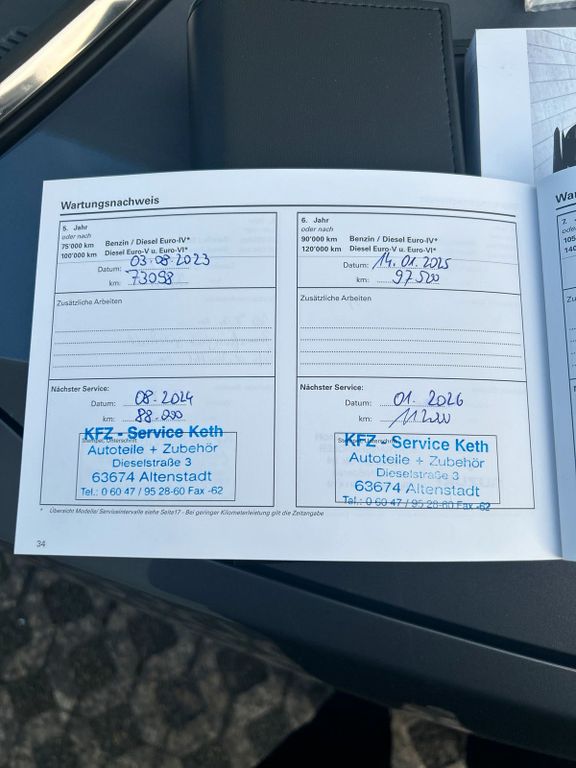 Wartungsnachweis
5. Jahr
oder nach
75'000 km Benzin / Diesel Euro-IV*
100'000 km Diesel Euro-V u. Euro-VI*
Datum: 03.08.2023
km: 73098
Zusätzliche Arbeiten
Nächster Service:
Datum: 08.2024
km: 88.000
KFZ - Service Keth
Autoteile + Zubehör
Dieselstraße 3
63674 Altenstadt
Tel.: 0 60 47 / 95 28-60 Fax -62
6. Jahr
oder nach
90'000 km Benzin / Diesel Euro-IV*
120'000 km Diesel Euro-V u. Euro-VI*
Datum: 14.01.2025
km: 97500
Zusätzliche Arbeiten
Nächster Service:
Datum: 01. 2026
km:
KFZ - Service Keth
Autoteile + Zubehör
Dieselstraße 3
63674 Altenstadt
Tel.: 0 60 47 / 95 28-60 Fax -62
* Übersicht Modelle/ Serviceintervalle siehe Seite17 - Bei geringer Kilometerleistung gilt die Zeitangabe
34